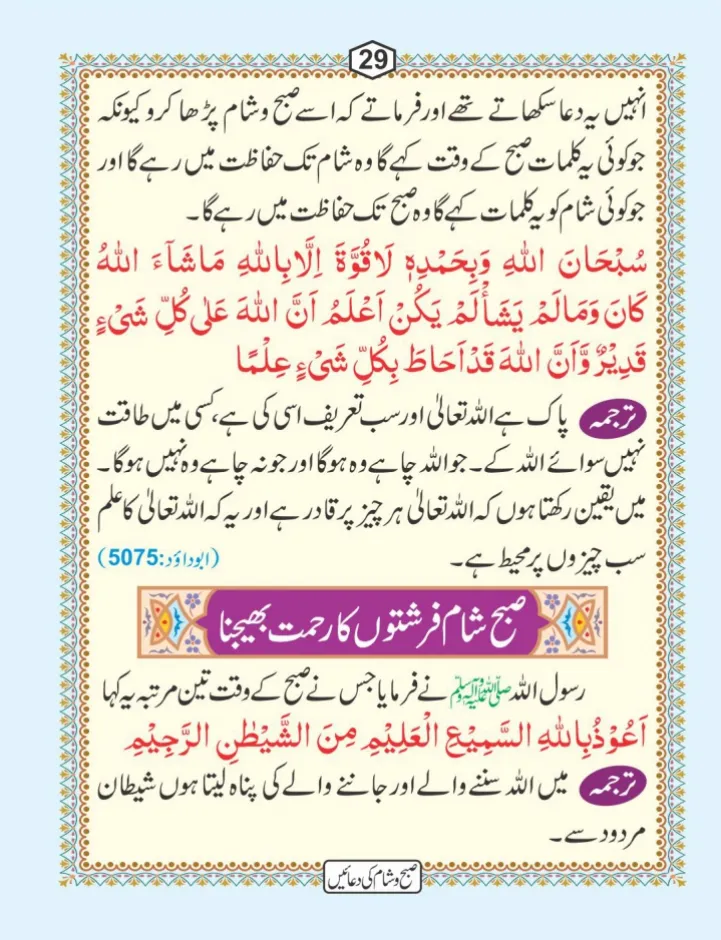 29
انہیں یہ دعا سکھاتے تھے اور فرماتے کہ اسے صبح و شام پڑھا کرو کیونکہ
جو کوئی یہ کلمات صبح کے وقت کہے گا وہ شام تک حفاظت میں رہے گا اور
جو کوئی شام کو یہ کلمات کہے گا وہ صبح تک حفاظت میں رہے گا۔
سُبْحَانَ اللهِ وَبِحَمْدِهٖ لَاقُوَّةَ اِلَّا بِاللهِ مَاشَآءَ اللهُ
كَانَ وَمَالَمْ يَشَأْلَمْ يَكُنْ اَعْلَمُ اَنَّ اللهَ عَلٰى كُلِّ شَىْءٍ
قَدِيْرٌ وَّاَنَّ اللهَ قَدْاَحَاطَ بِكُلِّ شَىْءٍ عِلْمًا
ترجمہ پاک ہے اللہ تعالیٰ اور سب تعریف اسی کی ہے، کسی میں طاقت
نہیں سوائے اللہ کے۔ جو اللہ چاہے وہ ہوگا اور جو نہ چاہے وہ نہیں ہوگا۔
میں یقین رکھتا ہوں کہ اللہ تعالیٰ ہر چیز پر قادر ہے اور یہ کہ اللہ تعالیٰ کا علم
سب چیزوں پر محیط ہے۔ (ابوداؤد:5075)
صبح شام فرشتوں کا رحمت بھیجنا
رسول اللہ ﷺ نے فرمایا جس نے صبح کے وقت تین مرتبہ یہ کہا
اَعُوْذُبِاللهِ السَّمِيْعِ الْعَلِيْمِ مِنَ الشَّيْطٰنِ الرَّجِيْمِ
ترجمہ میں اللہ سننے والے اور جاننے والے کی پناہ لیتا ہوں شیطان
مردود سے۔
صبح و شام کی دعائیں